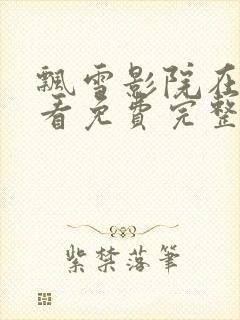 飘雪影院在
看免费完整
紫禁落筆